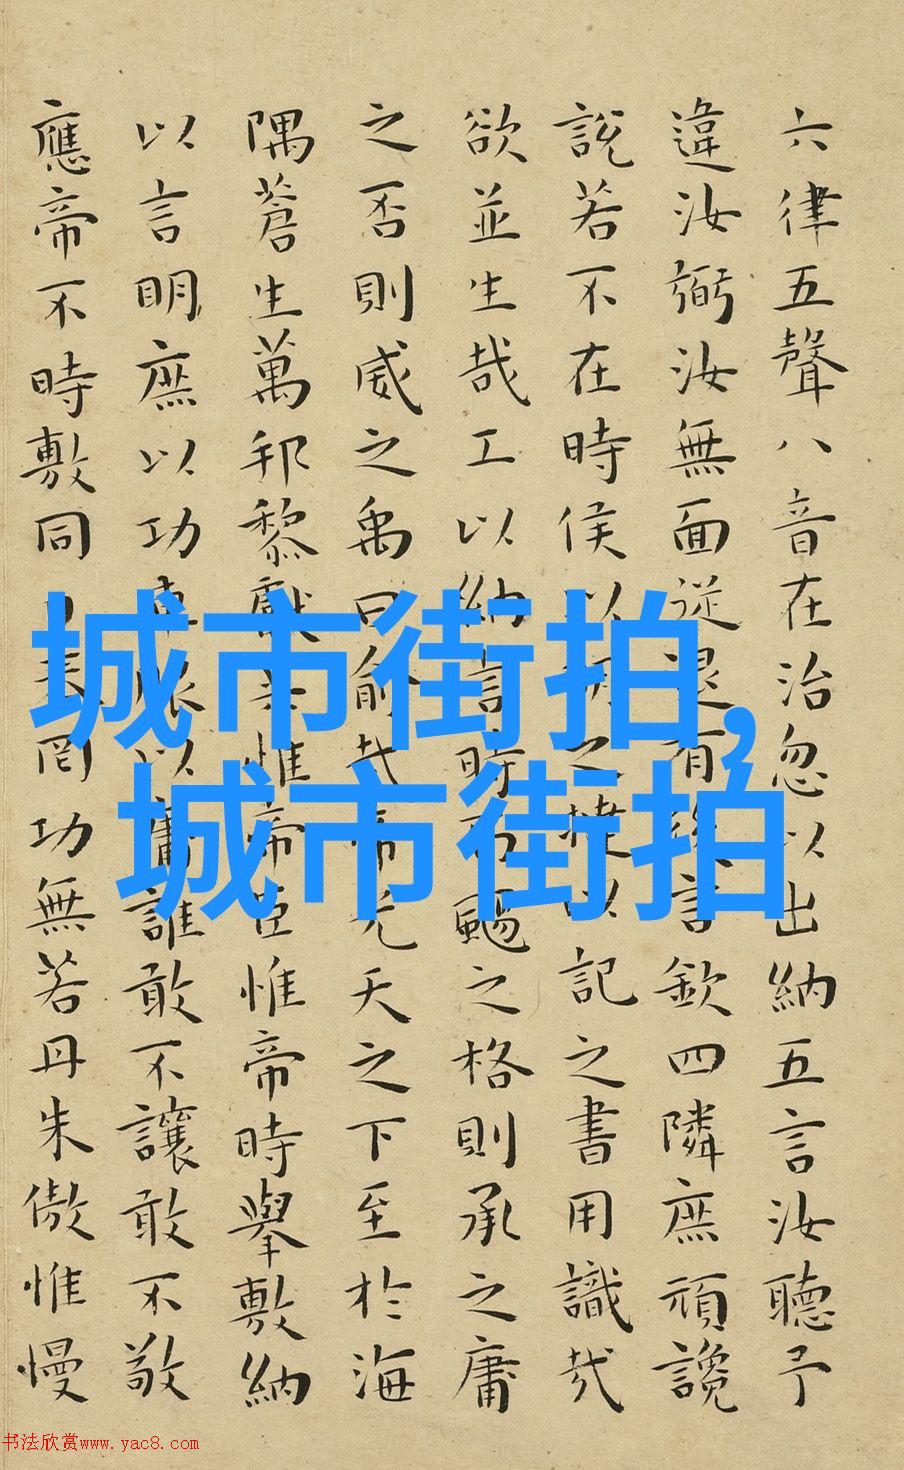 六律五聲八音在治忽以出納五言汝聽予
違汝弼汝無面從退有後言欽四隣庶頑讒
說若不在時侯以明之撻以記之書用識哉
欲並生哉工以納言時而颺之格則承之庸
之否則威之禹曰俞哉帝光天之下至於海
隅蒼生萬邦黎獻共惟帝臣惟帝時舉敷納
以言明庶以功車服以庸誰敢不讓敢不敬
應帝不時敷同日奏罔功無若丹朱傲惟慢
城市街拍,
城市街拍
书法欣赏www.yac8.com